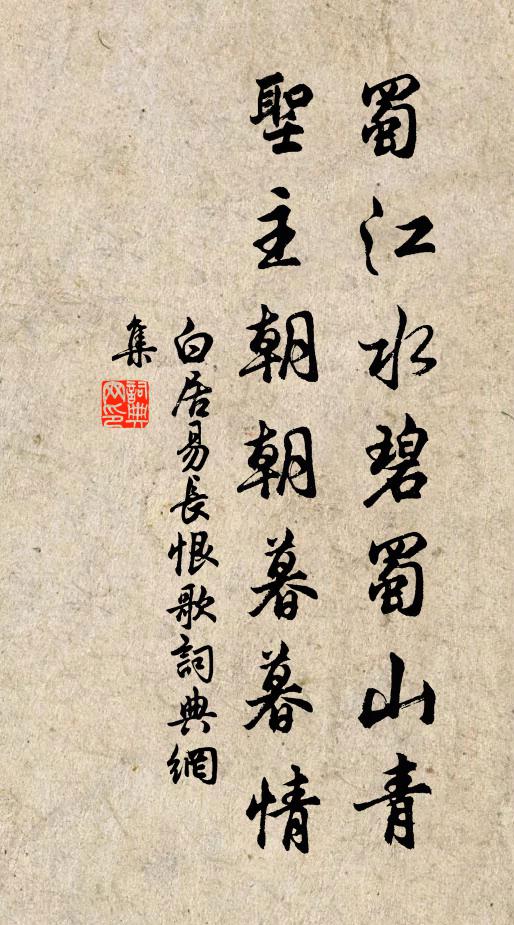 蜀江水碧蜀山青
聖主朝朝暮暮情
白居易長恨歌詞典網
集
詞典
网印